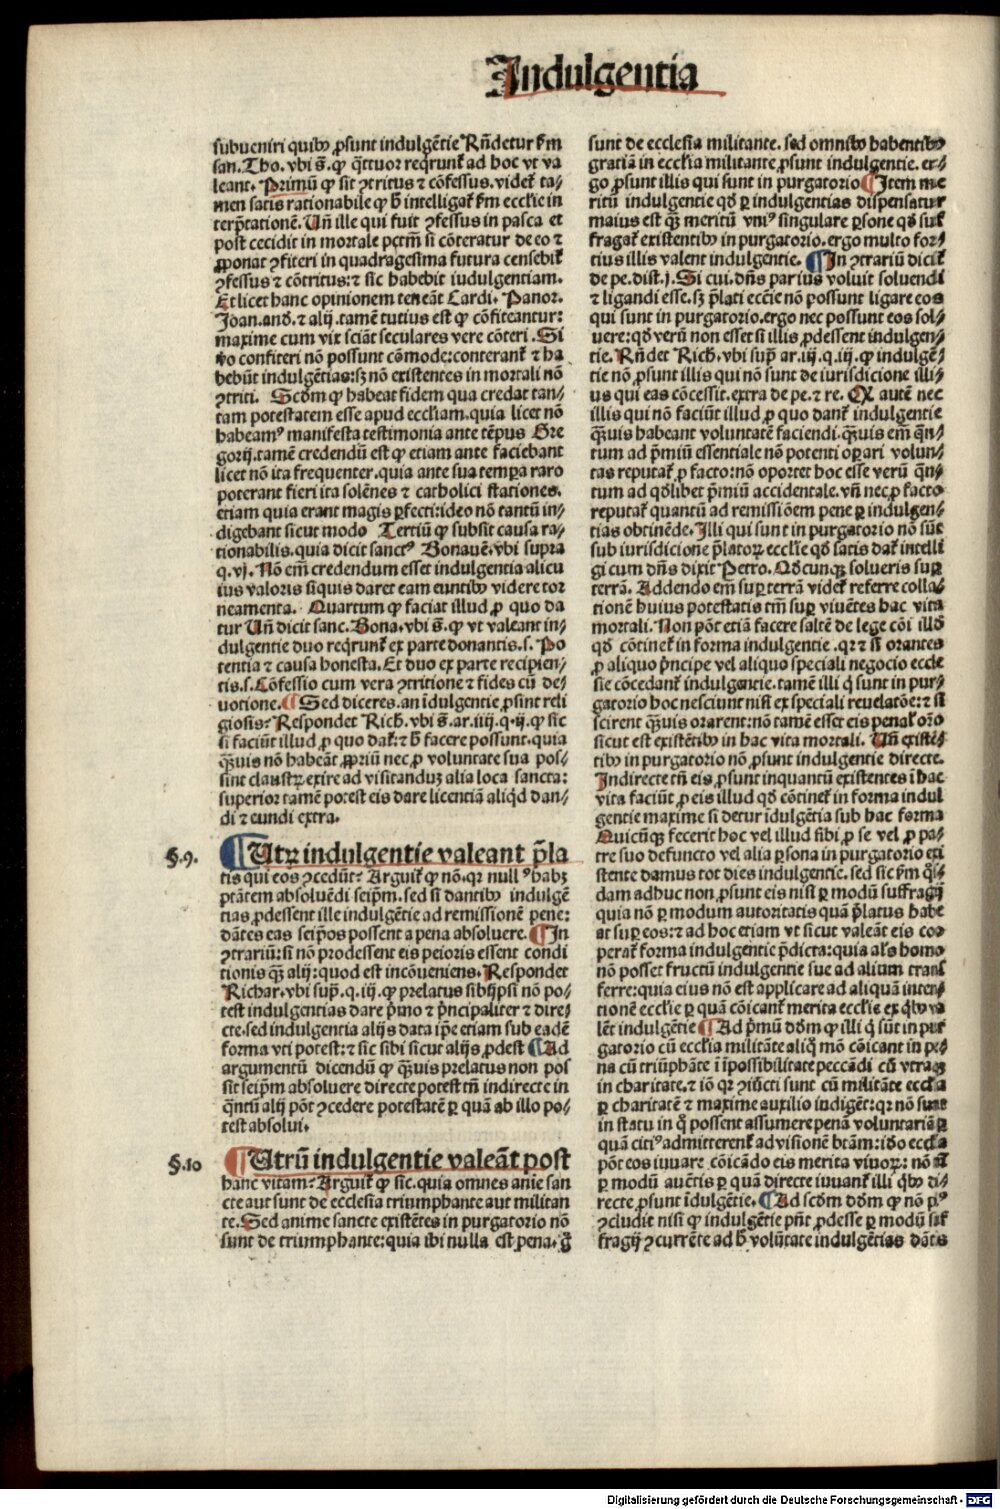 Indulgentia
subueniri quibꝰ ꝓsunt indulgētie Rñdetur ẜm
san. Tho. vbi s̄. ꝙ q̄ttuor reqrunt̄ ad hoc vt va⸗
leant. Primū ꝙ sit ꝯtritus ⁊ cōfessus. videt̄ ta⸗
men satis rationabile ꝙ h̄ intelligat̄ ẜm ecclie in
terp̄tationē. Uñ ille qui fuit ꝯfessus in pasca et
post cecidit in mortale pctm̄ si cōteratur de eo ⁊
ꝓponat ꝯfiteri in quadragesima futura censebit̄
ꝯfessus ⁊ cōtritus: ⁊ sic habebit iudulgentiam.
Et licet hanc opinionem teneāt Cardi. Panor.
Joan. and̄. ⁊ alij. tamē tutius est ꝙ cōfiteantur:
maxime cum vix sciāt seculares vere cōteri. Si
ꝟo confiteri nō possunt cōmode: conterant̄ ⁊ ha
bebūt indulgētias: sꝫ nō existentes in mortali nō
ꝯtriti. Scd̄m ꝙ habeat fidem qua credat tan⸗
tam potestatem esse apud eccliam. quia licet nō
habeamꝰ manifesta testimonia ante tēpus Gre
gorij. tamē credendū est ꝙ etiam ante faciebant
licet nō ita frequenter. quia ante sua tempa raro
poterant fieri ita solēnes ⁊ catholici stationes.
etiam quia erant magis ꝑfecti: ideo nō tantū in⸗
digebant sicut modo Tertiū ꝙ subsit causa ra⸗
tionabilis. quia dicit sanctꝰ Bonauē. vbi supra
q. vj. Nō em̄ credendum esset indulgentia alicu
ius valoris siquis daret eam euntibꝰ videre tor
neamenta. Quartum ꝙ faciat illud ꝓ quo da
tur Uñ dicit sanc. Bona. vbi s̄. ꝙ vt valeant in⸗
dulgentie duo reqrunt̄ ex parte donantis. s. Po
tentia ⁊ causa honesta. Et duo ex parte recipien⸗
tis. s. Cōfessio cum vera ꝯtritione ⁊ fides cū de⸗
uotione. ¶ Sed diceres. an īdulgentie ꝓsint reli
giosis? Respondet Rich. vbi s̄. ar. iiij. q. ij. ꝙ sic
si faciūt illud ꝓ quo dat̄: ⁊ h̄ facere possunt. quia
q̄ꝫuis nō habeāt ꝓpriū nec ꝓ voluntate sua pos⸗
sint claustꝝ exire ad visitanduꝫ alia loca sancta:
superior tamē potest eis dare licentiā aliqd̄ dan⸗
di ⁊ eundi extra.
§. 9. ¶ Utꝝ indulgentie valeant p̄la
tis qui eos ꝯcedūt? Arguit̄ ꝙ nō. qꝛ nullꝰ habꝫ
ptātem absoluēdi seip̄m. sed si dantibꝰ indulgē
tias ꝓdessent ille indulgētie ad remissionē pene:
dātes eas seip̄os possent a pena absoluere. ¶ In
ꝯtrariū: si nō prodessent eis peioris essent condi
tionis qꝫ alij: quod est incōueniens. Respondet
Richar. vbi sup̄. q. iij. ꝙ prelatus sibijpsi nō po⸗
test indulgentias dare p̄mo ⁊ p̄ncipaliter ⁊ dire⸗
cte. sed indulgentia alijs data ip̄e etiam sub eadē
forma vti potest: ⁊ sic sibi sicut alijs ꝓdest ¶ Ad
argumentū dicendū ꝙ q̄ꝫuis prelatus non pos
sit seip̄m absoluere directe potest tn̄ indirecte in
q̄ntū alij pōt ꝯcedere potestatē ꝑ quā ab illo po⸗
test absolui.
§. 10 ¶ Utrū indulgentie valeāt post
hanc vitam? Arguit̄ ꝙ sic. quia omnes anie san
cte aut sunt de ecclesia triumphante aut militan
te. Sed anime sancte existētes in purgatorio nō
sunt de triumphante: quia ibi nulla est pena. g̊
sunt de ecclesia militante. sed omnibꝰ habentibꝰ
gratiā in ecclia militante ꝓsunt indulgentie. er⸗
go ꝓsunt illis qui sunt in purgatorio ¶ Item me
ritū indulgentie qd̄ ꝑ indulgentias dispensatur
maius est qꝫ meritū vniꝰ singulare ꝑsone qd̄ suf
fragat̄ existentibꝰ in purgatorio. ergo multo for⸗
tius illis valent indulgentie. ¶ In ꝯtrariū dicit̄
de pe. dist. j. Si cui. dn̄s par ius voluit soluendi
⁊ ligandi esse. sꝫ p̄lati eccēie nō possunt ligare eos
qui sunt in purgatorio. ergo nec possunt eos sol⸗
uere: qd̄ verū non esset si illis ꝓdessent indulgen⸗
tie. Rñdet Rich. vbi sup̄ ar. iij. q. iij. ꝙ indulgē⸗
tie nō ꝓsunt illis qui nō sunt de iurisdicione illi⸗
us qui eas cōcessit. extra de pe. ⁊ re. Qd̄ autē nec
illis qui nō faciūt illud ꝓ quo dant̄ indulgentie
q̄ꝫuis habeant voluntatē faciendi. q̄ꝫuis em̄ q̄n⸗
tum ad p̄miū essentiale nō potenti oꝑari volun⸗
tas reputat̄ ꝓ facto: nō oportet hoc esse verū q̄n⸗
tum ad qd̄libet p̄miū accidentale. vn̄ nec ꝓ facto
reputat̄ quantū ad remissiōem pene ꝑ indulgen⸗
tias obtinēde. Illi qui sunt in purgatorio nō sūt
sub iurisdicione p̄latoꝝ ecclie qd̄ satis dat̄ intelli
gi cum dn̄s dixit Petro. Qd̄cunqꝫ solueris suꝑ
terrā. Addendo em̄ suꝑ terrā videt̄ referre colla⸗
tionē huius potestatis tm̄ suꝑ viuētes hac vita
mortali. Non pōt etiā facere saltē de lege cōi illd̄
qd̄ cōtinet̄ in forma indulgentie. qꝛ ⁊ si orantes
ꝓ aliquo p̄ncipe vel aliquo speciali negocio eccle
sie cōcedant̄ indulgentie. tamē illi q̄ sunt in pur⸗
gatorio hoc nesciunt nisi ex speciali reuelatōe: ⁊ si
scirent q̄ꝫuis orarent: nō tamē esset eis penał or̄o
sicut est existētibꝰ in hac vita mortali. Uñ existē⸗
tibꝰ in purgatorio nō ꝓsunt indulgentie directe.
Indirecte tn̄ eis ꝓsunt inquantū existentes ī hac
vita faciūt ꝓ eis illud qd̄ cōtinet̄ in forma indul
gentie maxime si detur īdulgētia sub hac forma
Quicūqꝫ fecerit hoc vel illud sibi ꝓ se vel ꝓ pa⸗
tre suo defuncto vel alia ꝑsona in purgatorio exi
stente damus tot dies indulgentie. sed sic ẜm qͦs⸗
dam adhuc non ꝓsunt eis nisi ꝑ modū suffragij
quia nō ꝑ modum autoritatis quā p̄latus habe
at suꝑ eos: ⁊ ad hoc etiam vt sicut valeāt eis coo
perat̄ forma indulgentie p̄dicta: quia als̄ homo
nō posset fructū indulgentie sue ad alium trans
ferre: quia eius nō est applicare ad aliquā inten⸗
tionē ecclie ꝑ quā cōicant̄ merita ecclie ex qͥbꝰ va
lēt indulgētie ¶ Ad p̄mū dd̄m ꝙ illi q̄ sūt in pur
gatorio cū ecclia militāte aliq̊ mō cōicant in pe⸗
na cū triūphāte ī īpossibilitate peccādi cū vtraqꝫ
in charitate. ⁊ iō qꝛ ꝯiūcti sunt cū militāte ecclia
ꝑ charitatē ⁊ maxime auxilio indigēt: qꝛ nō sunt
in statu in q̊ possent assumere penā voluntariā ꝑ
quā citiꝰ admitterent̄ ad visionē btām: iđo ecclia
pōt eos iuuare cōicādo eis merita viuoꝝ: nō tn̄
ꝑ modū auctīs ꝑ quā directe iuuant̄ illi qͥbꝰ di⸗
recte ꝓsunt īdulgētie. ¶ Ad scd̄m dd̄m ꝙ nō pꝰ
ꝯcludit nisi ꝙ indulgētie pn̄t ꝓdesse ꝑ modū suf
fragij ꝯcurrēte ad h̄ volūtate indulgētias dātis
Digitalisierung gefördert durch die Deutsche Forschungsgemeinschaft - DFG